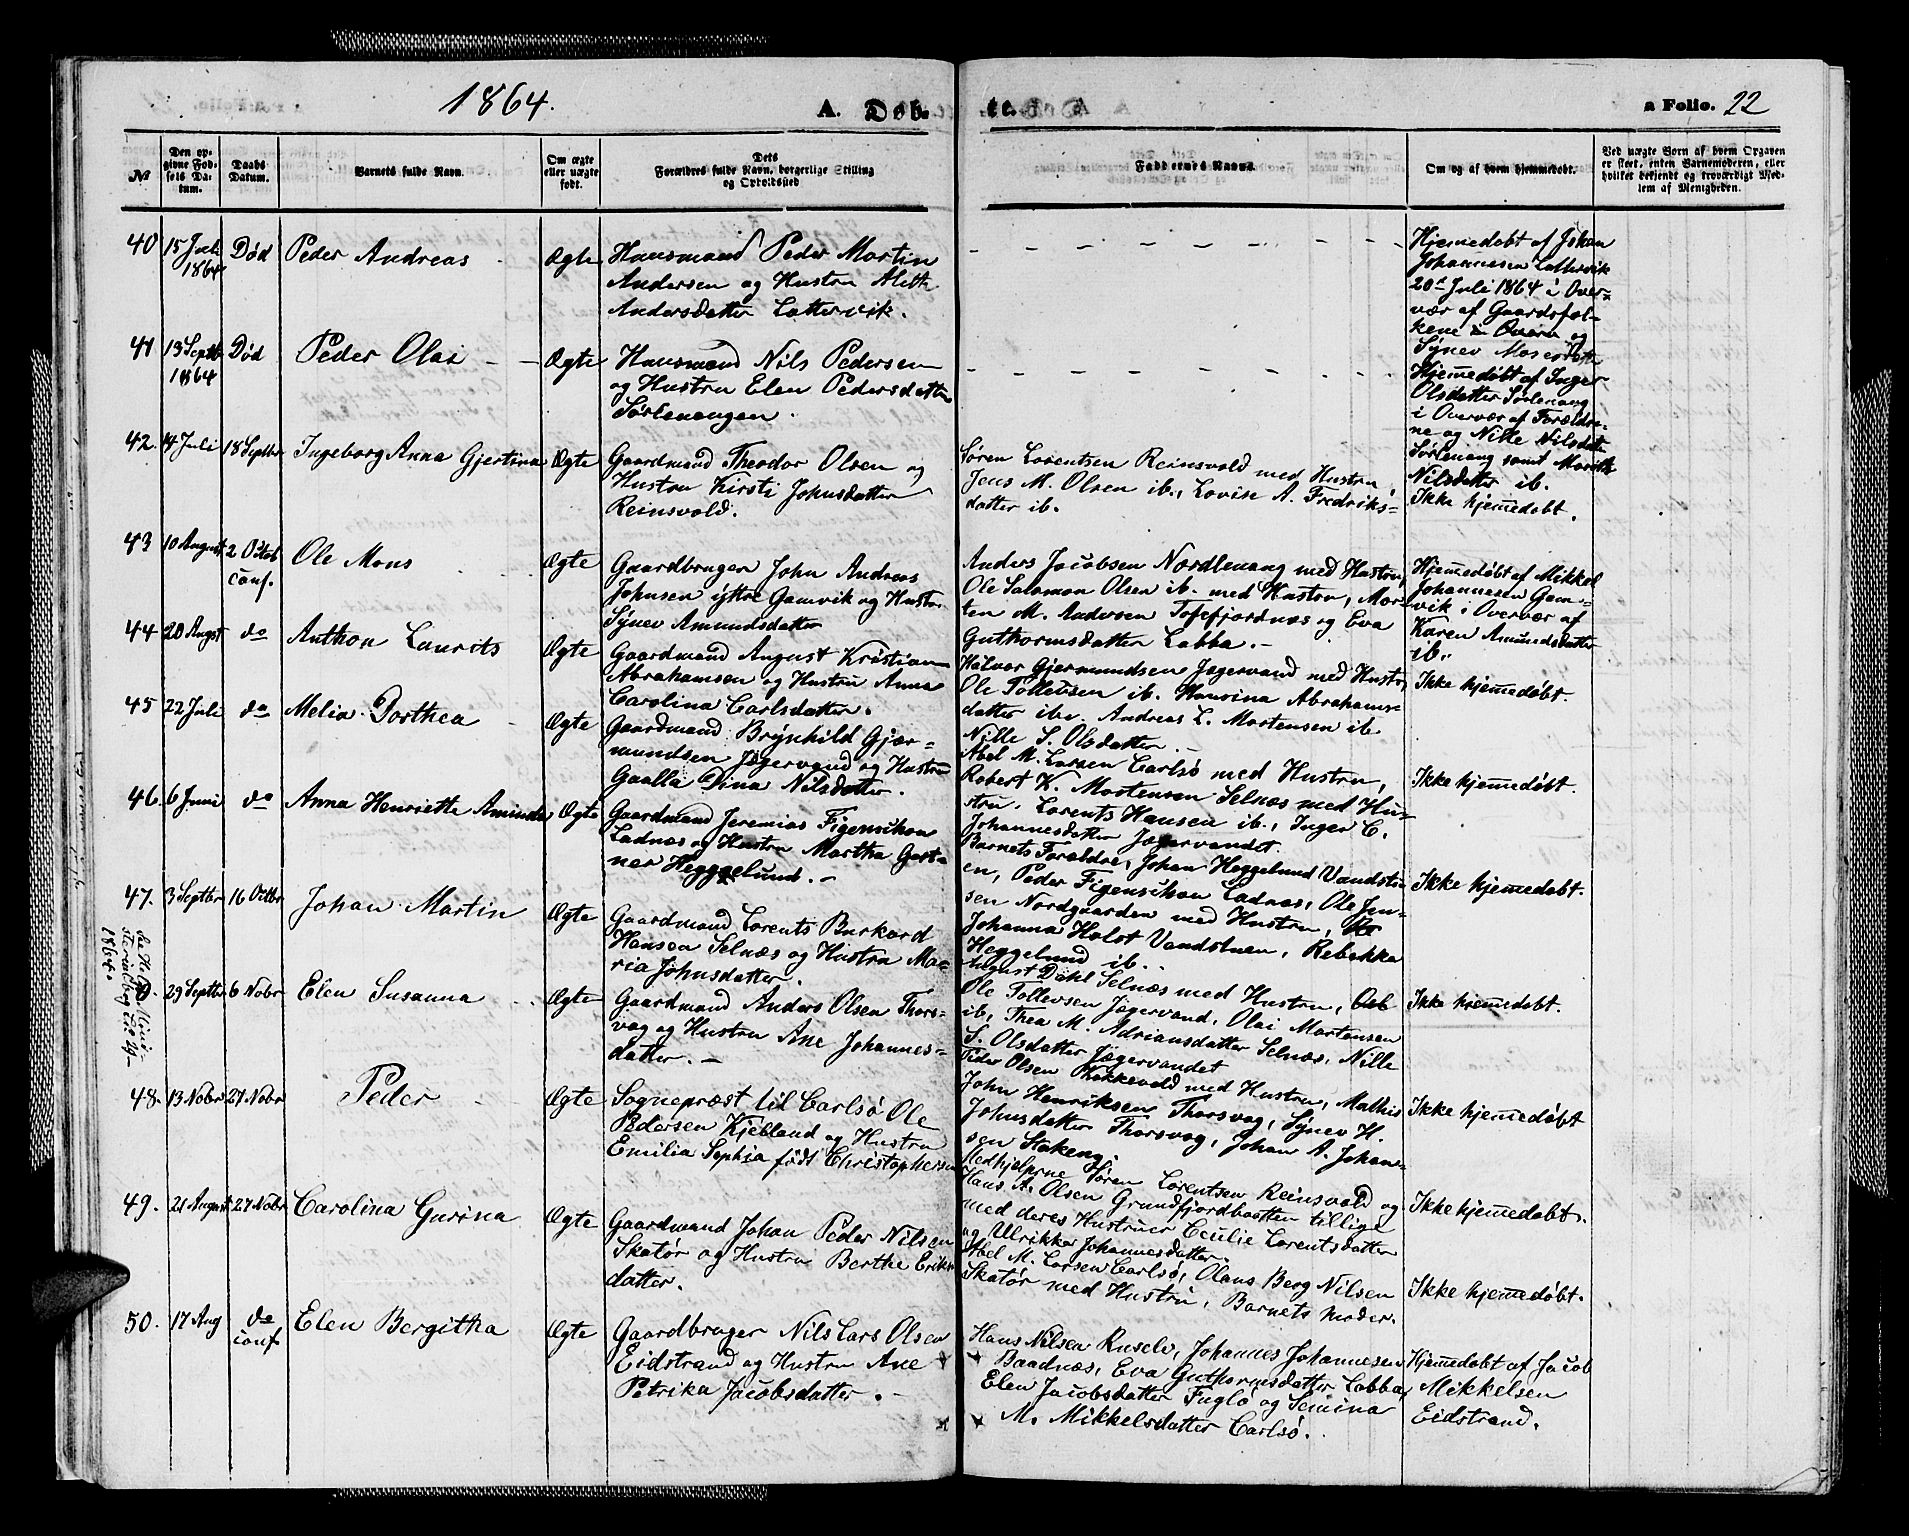 1864.
A. Døb-
te.
a Folio. 22
№
Den op-
givne Fød-
sels Da-
tum.
Daabs
Datum.
Barnets fulde Navn.
Om ægte
eller uægte
født.
Dets
Forældres fulde Navn, borgerlige Stilling
og Opholdssted
Faddernes Navne.
Om og af hvem hjemmedøbt.
Ved uægte Børn af hvem Opgaven
er skeet, enten Barnemoderen, eller
hvilket bekjendt og troværdigt Med-
lem af Menigheden.
40
15 Juli
1864
Død
Peder Andreas
Ægte
Huusmand Peder Martin
Andersen og Hustru Aleth
Andersdatter Lattervik.
Hjemedøbt af Johan
Johannesen Lattervik
20de Juli 1864 i Over-
vær af Gaardsfol-
kene Overn og
Synev Mosesdatt
41
13 Septbr
1864
Død
Peder Olai
Ægte
Huusmand Nils Pedersen
og Hustru Elen Pedersdatter
Sørlenangen.
Hjemedøbt af Inger
Olsdatter Sørlenang
i Overvær af Forældre-
ne og Nille Nilsdatter
Sørlenang samt Marith
Nilsdatter ib.
42.
14 Juli
18 Septbr
Ingeborg Anna Gjertina
Ægte
Gaardmand Theodor Olsen og
Hustru Kirsti Johnsdatter
Reinsvold.
Søren Lorentsen Reinsvold med Hustru,
Jens M. Olsen ib., Lovise A. Fredriks-
datter ib.
Ikke hjemedøbt.
43
10 August
2 Octob
conf.
Ole Mons
Ægte
Gaardbruger John Andreas
Johnsen yttre Gamvik og Hustr.
Synev Amundsdatter
Anders Jacobsen Nordlenang med Hustru,
Ole Salamon Olsen ib. med Hustru, Mor-
ten M. Andersen Tofefjordnæs og Eva
Guttormsdatter Labba.
Hjemedøbt af Mikkel
Johannesen Gam-
vik i Overvær af
Karen Amundsdatter
ib.
44
20 Augst
do
Anthon Laurits
Ægte
Gaardmand August Kristian
Abrahamsen og Hustru Anna
Carolina Carlsdatter.
Halvor Gjermundsen Jægervand med Hustr,
Ole Tollevsen ib. Hansina Abrahams-
datter ib. Andreas L. Mortensen ib
Nille S. Olsdatter.
Ikke hjemedøbt.
45
22 Juli
do
Melia Dorthea
Ægte
Gaardmand Brynhild Gjær-
mundsen Jægervand og Hustru
Gaalla Dina Nilsdatter.
Abel M. Larsen Carlsø med Hustru,
Robert K. Mortensen Selnæs med Hu-
stru, Lorents Hansen ib., Inger C.
Johannesdatter Jægervandet.
Ikke hjemedøbt.
46.
6 Juni
do
Anna Henriette Aminda
Ægte
Gaardmand Jeremias Figenschou
Ladnæs og Hustru Martha Gært-
ner Heggelund.
Barnets Forældre, Johan Heggelund Vandstu-
en, Peder Figenschou Ladnæs, Ole Jen-
sen Nordgaarden med Hustru,
Johanna Holst Vandstuen, Rebekka
Heggelund ib.
Ikke hjemedøbt.
47.
3 Septbr
16 Octbr
Johan Martin
Ægte
Gaardmand Lorents Burkard
Hansen Selnæs og Hustru Ma-
ria Johnsdatter.
August Dahl Selnæs med Hustru,
Ole Tollevsen Jægervand, Olai Mortensen
ib, Thea M. Adriansdatter Selnæs, Nille
S. Olsdatter Jægervandet
Ikke hjemedøbt.
1864.
29 Septbr
6 Nobr
Elen Susanna
Ægte
Gaardmand Anders Olsen Thors-
vag og Hustru Ane Johannes-
datter.
Peder Olsen Kokkevold med Hustru, Mathis
John Henriksen Thorsvag, Synev H.
Johnsdatter Thorsvag, Johan A. Johane-
sen Stakeng.
48.
13 Nobr
27 Nobr
Peder
Ægte
Sognepræst til Carlsø Ole
Pedersen Kjelland og Hustru
Emilia Sophia født Christophersen
Medhjelperne Søren Lorentsen Reinsvold og
Hans A. Olsen Grundfjordbotten tillige
med deres Hustruer Cecilie Lorentsdatter
og Ulrikke Johannesdatter.
Ikke hjemedøbt
49.
21 August
27 Nobr
Carolina Gurina
Ægte
Gaardmand Johan Peder Nilsen
Skatør og Hustru Berthe Eriks
datter.
Abel M. Larsen Carlsø, Olaus Berg Nilsen
Skatør med Hustru, Barnets Moder.
Ikke hjemedøbt.
Ikke hjemedøbt.
50.
17 Aug
do
conf
Elen Bergitha
Ægte
Gaardbruger Nils Lars Olsen
Eidstrand og Hustru Ane
Petrika Jacobsdatter.
Hans Nilsen Ruselv, Johannes Johannesen
Baadnæs, Eva Guttormsdatter Labba,
Elen Jacobsdatter Fuglø og Semina
M. Mikkelsdatter Carlsø.
Hjemedøbt af Jacob
Mikkelsen
Eidstrand.